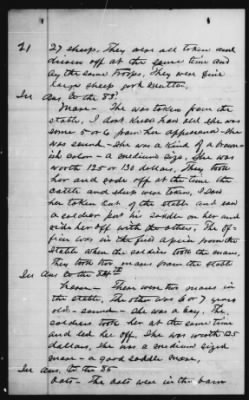 21 27 sheep. They were all taken and
driven off at the same time and
by the same troops. They were fine
large sheep good mutton.
In Ans. to the 53d
Mare - She was taken from the
stable. I dont know how old she was
some 5 or 6 from her appearance - She
was sound - She was a kind of a brown-
ish color - a medium size. She was
worth 125 or 130 dollars. They took
her and rode off at the time the
cattle and sheep were taken. I saw
her taken out of the stable and saw
a soldier put his saddle on her and
ride her off with the others. The of-
ficer was in the field a piece from the
stable when the soldier took the mare.
They took two mares from the stable
In Ans. to the 54th
Mare - There were two mares in
the stable. The other was 6 or 7 years
old - sound - She was a bay. The
soldiers took her at the same time
and led her off. She was worth 125
dollars, she was a medium sized
mare - a good saddle mare,
In Ans. to the 55
Oats - The oats were in the barn